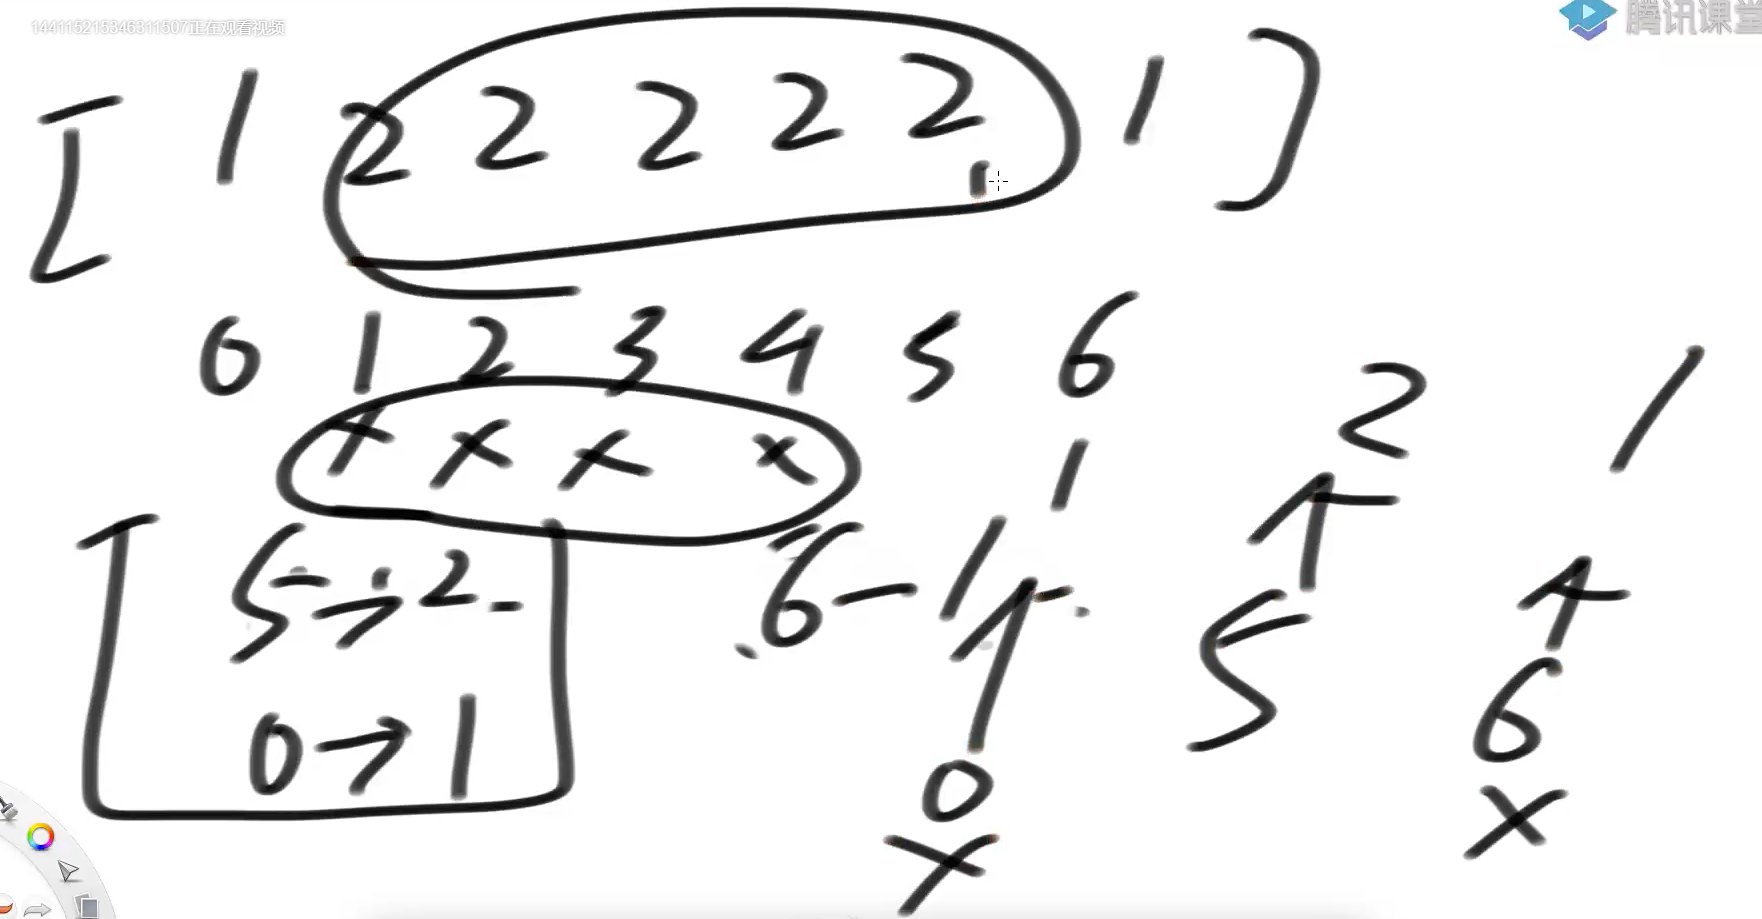 144115215346311507正在观看视频
腾讯课堂
[ 1 2 2 2 2 2 1 ]
0 1 2 3 4 5 6
x x x x
1 2 1
5 → 2
6 - 1
5 6
0 → 1
0
x x